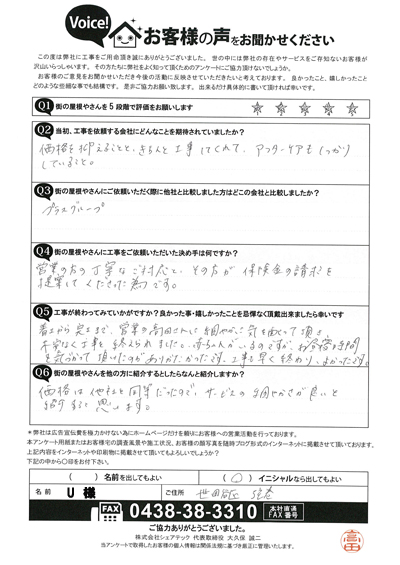 Voice!
お客様の声をお聞かせください
この度は弊社に工事をご用命頂き誠にありがとうございました。世の中には弊社の存在やサービスをご存知ないお客様が
沢山いらっしゃいます。その方たちに弊社をよく知って頂くためのアンケートにご協力頂けないでしょうか。
お客様のご意見をお聞かせいただき今後の活動に反映させていただきたいと考えております。良かったこと、嬉しかったこと
どのような些細な事でも結構です。是非ご協力お願い致します。出来るだけ具体的に書いて頂ければ幸いです。
Q1 街の屋根やさんを5段階で評価をお願いします
Q2 当初、工事を依頼する会社にどんなことを期待されていましたか?
価格を抑えることと、きちんと工事してくれて、アフターケアもしっかり
していること。
Q3 街の屋根やさんにご依頼いただく際に他社と比較しました方はどこの会社と比較しましたか?
プラスグループ
Q4 街の屋根やさんに工事をご依頼いただいた決め手は何ですか?
営業の方の丁寧なご対応と、その方が保険金の請求を
提案してくださった為です。
Q5 工事が終わってみていかがですか?良かった事・嬉しかったことを忌憚なく頂戴出来ましたら幸いです
着工から完工まで、営業の高田さんに細やかに気を配って頂き
不安なく工事を終えられました。赤ちゃんがいるのですが、お昼寝の時間
を気づかって頂いたのがありがたかったです。工事も早く終わり、よかったです。
Q6 街の屋根やさんを他の方に紹介するとしたらなんと紹介しますか?
価格は他社と同等だったので、サービスの細やかさが良いと
紹介すると思います。
*弊社は広告宣伝費を極力かけない為にホームページだけを頼りにお客様への営業活動を行っております。
本アンケート用紙またはお客様宅の調査風景や施工状況、お客様の顔写真を随時ブログ形式のインターネットに掲載させて頂いております。
上記内容をインターネットや印刷物に掲載させて頂いてもよろしいでしょうか?
下記の中から○印をお付下さい。
( )名前を出してもよい (○)イニシャルなら出してもよい
名前 U 様 ご住所 世田谷区
FAX 0438-38-3310 本社直通FAX番号
ご協力ありがとうございました。
株式会社シェアテック 代表取締役 大久保 誠二
当アンケートで取得したお客様の個人情報は関係法規に基づき厳正に管理いたします。
高田